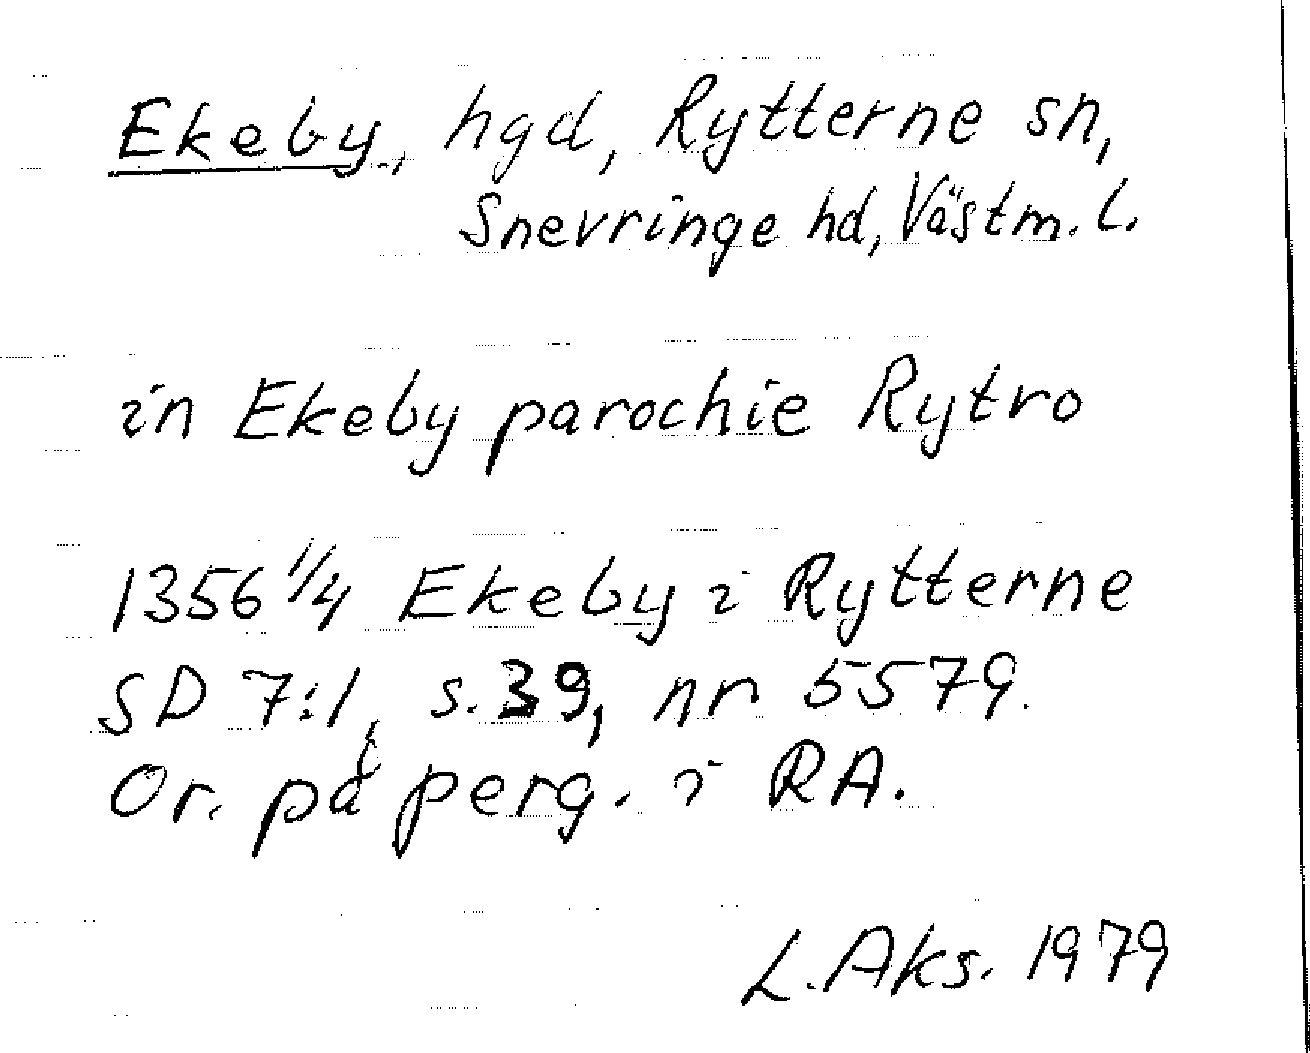 Ekeby, hgd, Rytterne sn,
Snevringe hd, Västm. l.
in Ekeby parochie Rytro
1356 1/4 Ekeby i Rytterne
SD 7:1, s. 39, nr 5579.
Or. på perg. i RA.
L. Aks. 1979